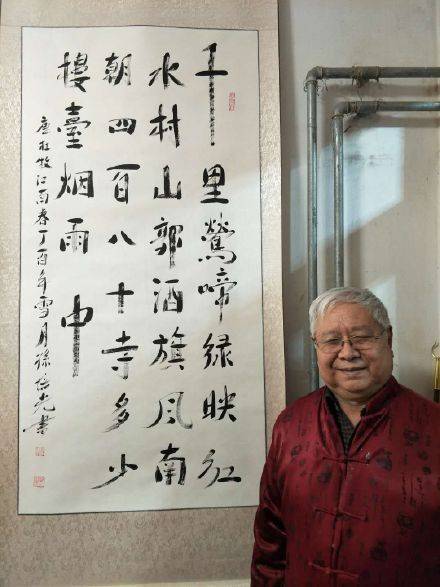 千里鶯啼绿映红
水村山郭酒旗风南
朝四百八十寺多少
樓臺烟雨中
唐杜牧江南春丁酉年雪月徐光書